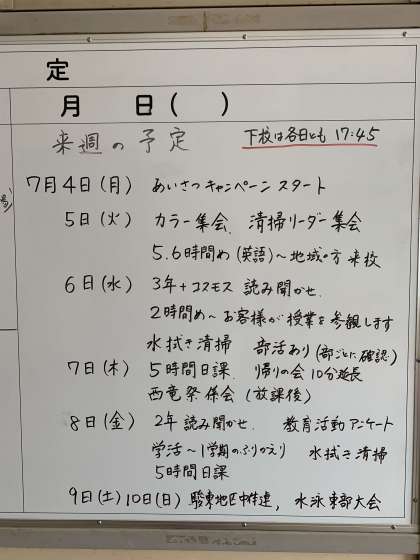 定
月 日( )
来週の予定 下校は各日とも 17:45
7月4日(月) あいさつキャンペーン スタート
5日(火) カラー集会、清掃リーダー集会
5.6時間め(英語)~地域の方 来校
6日(水) 3年+コスモス 読み聞かせ.
2時間め~お客様が授業を参観します
水拭き清掃 部活あり(部ごとに確認)
7日(木) 5時間日課、帰りの会 10分延長
西竜祭係会(放課後)
8日(金) 2年 読み聞かせ. 教育活動アンケート
学活~1学期のふりかえり 水拭き清掃
5時間日課
9日(土)10日(日) 駿東地区中体連, 水泳東部大会